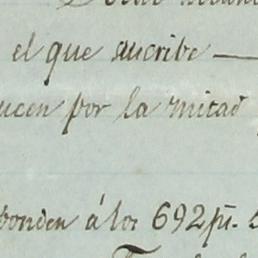 el que suscribe
ucen por la mitad
ponden á los 692 pts.